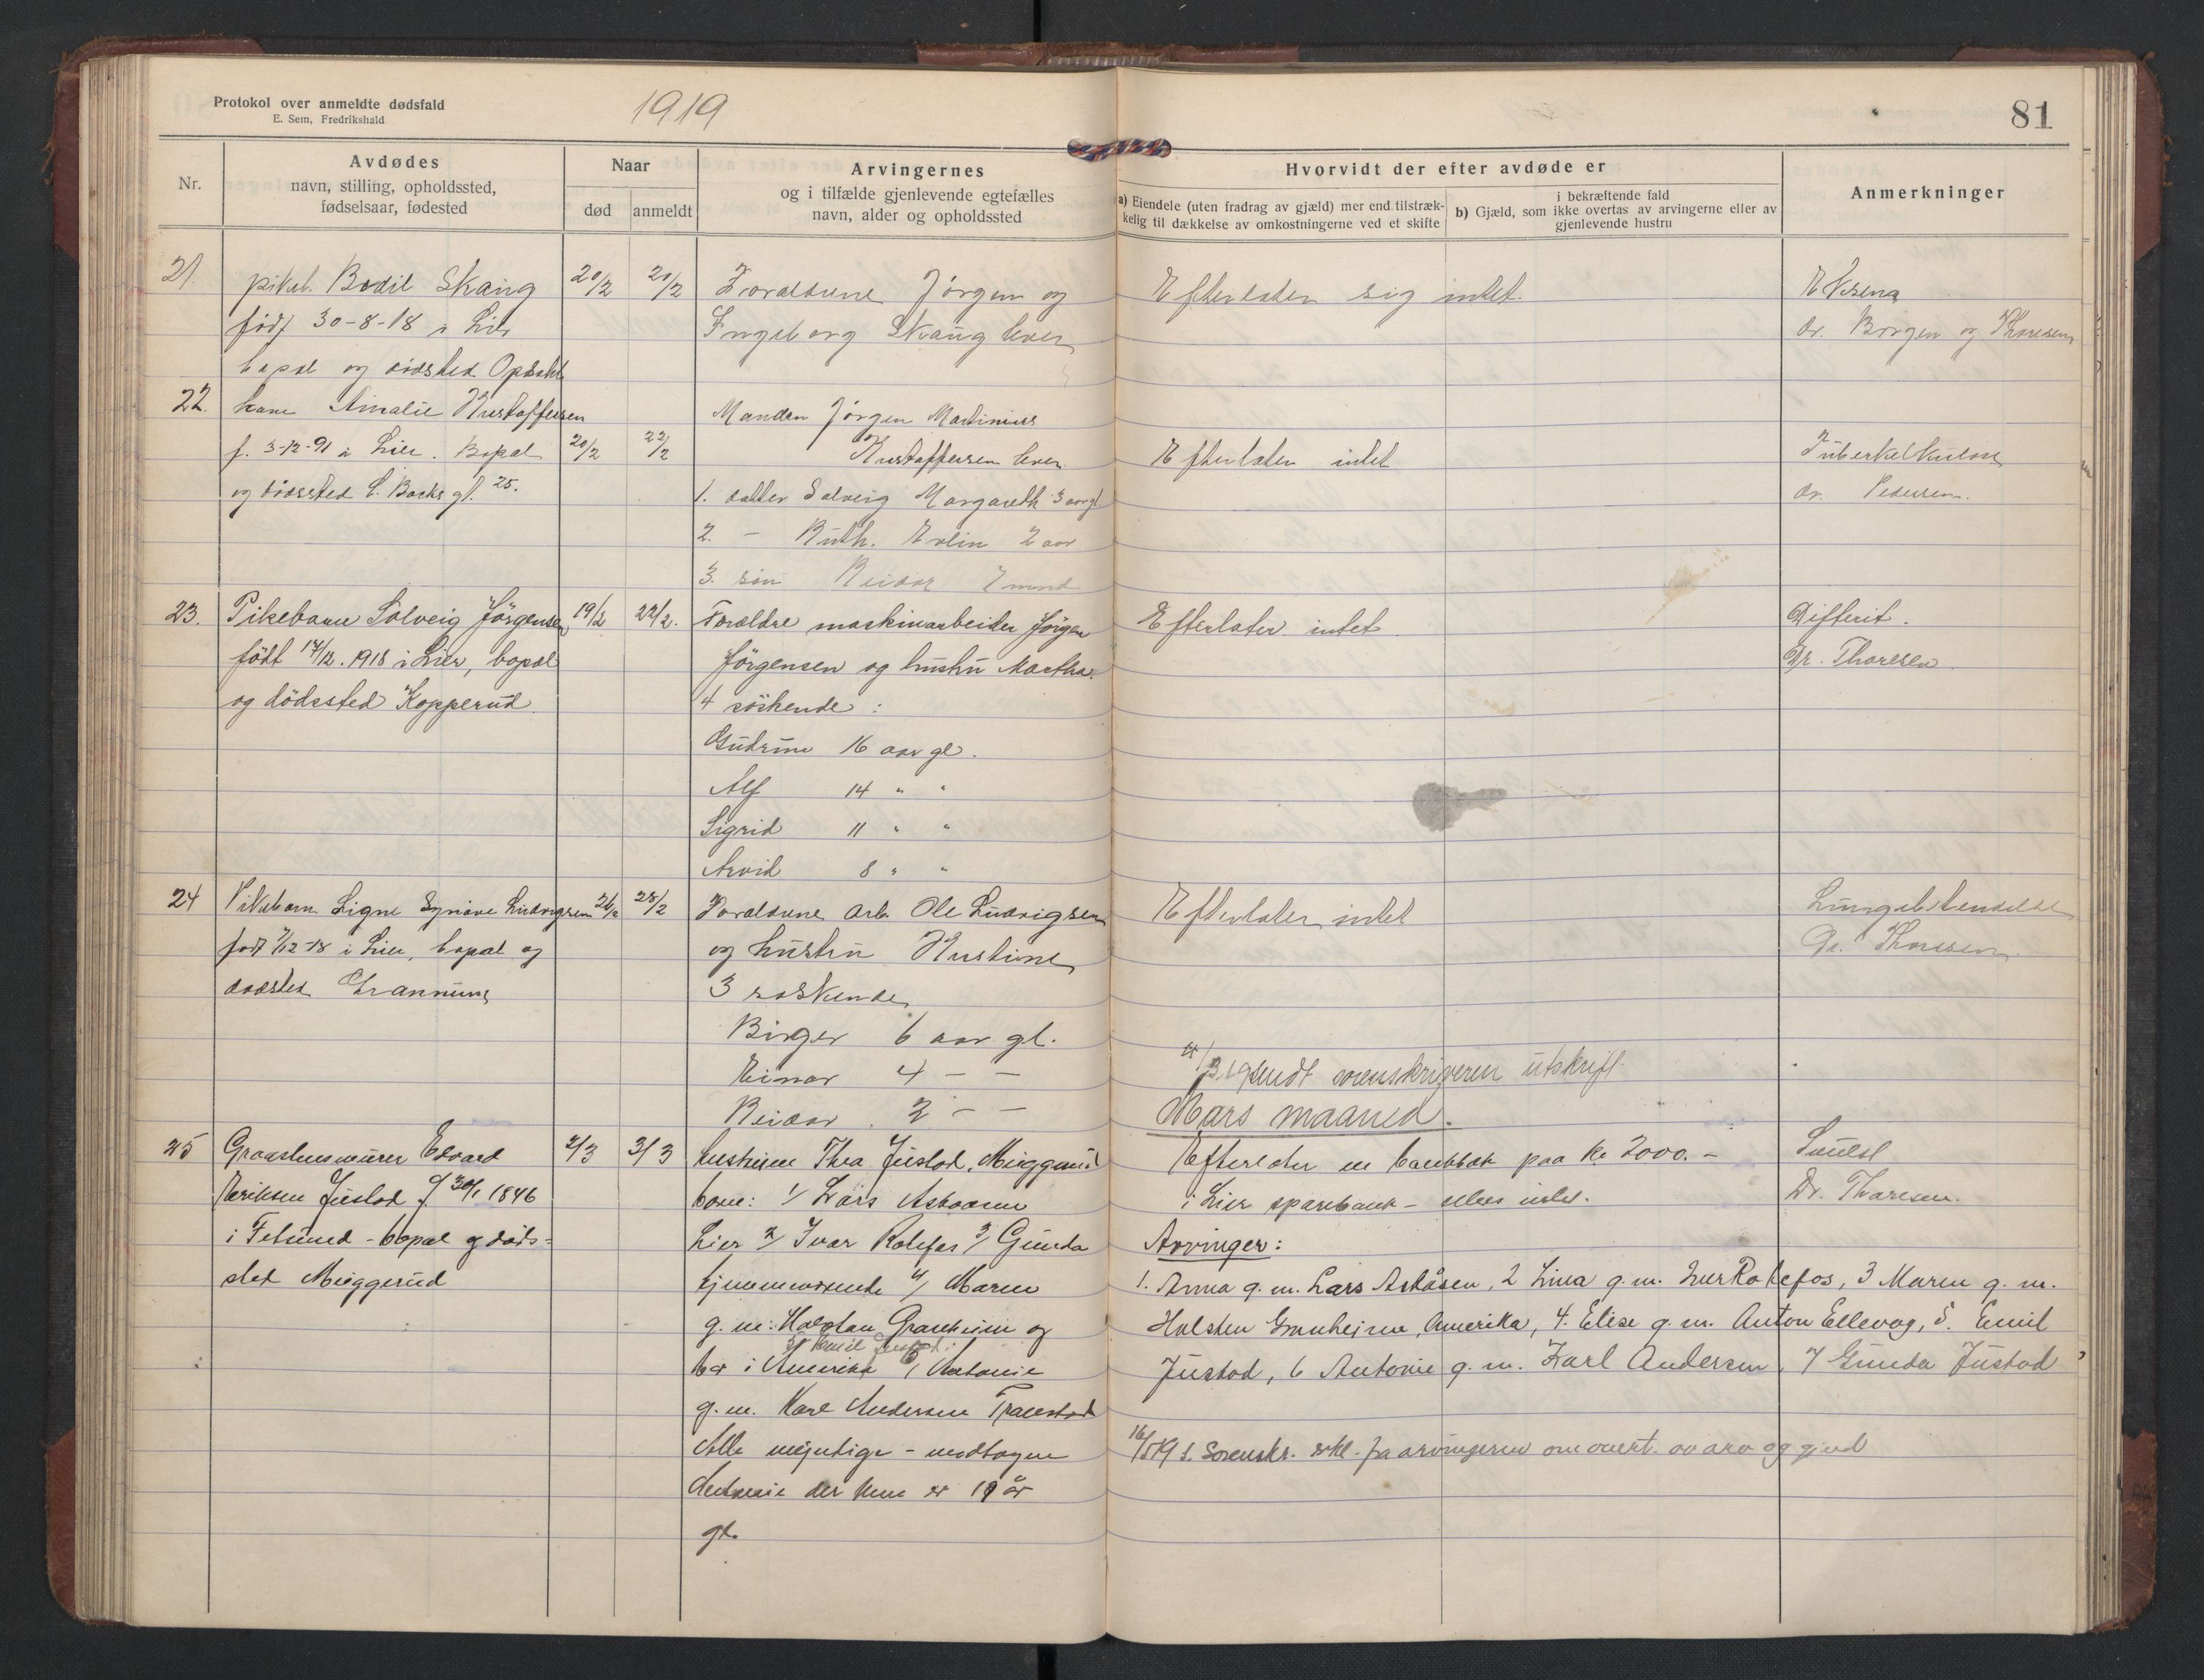 Protokol over anmeldte dødsfald
E. Sem, Fredrikshald
1919
81
Nr.
Avdødes
navn, stilling, opholdssted,
fødselsaar, fødested
Naar
død
anmeldt
Arvingernes
og i tilfælde gjenlevende egtefælles
navn, alder og opholdssted
Hvorvidt der efter avdøde er
a) Eiendele (uten fradrag av gjæld) mer end tilstræk-
kelig til dækkelse av omkostningerne ved et skifte
i bekræftende fald
b) Gjæld, som ikke overtas av arvingerne eller av
gjenlevende hustru
Anmerkninger
21. pikeb. Bodil Skang 20/2 20/2 Forældrene Jørgen og Efterlater sig intet. Eksena
født 30-8-18 i Lier Ingeborg Skaug lever dr. Borgen og Thoresen
bopæl og dødsted Opdahl
22. kone Amalie Kristoffersen Manden Jørgen Martinius
f. 3-12-91 i Lier. Bopæl 20/2 22/2 Kristoffersen lever. Efterlater intet Tuberkelkulose
og dødssted S. Backs gl. 25. 1. datter Solveig Margareth 3 aar gl dr. Pedersen.
2. - Ruth. Evlin 2 aar
3. søn Reidar 7 mnd
23. Pikebarn Solveig Jörgensen 19/2 22/2. Forældre maskinarbeider Jörgen Efterlater intet. Difterit.
födt 14/12. 1918 i Lier, bopæl Jörgensen og hustru Martha. Dr. Thoresen
og dödssted Kopperud. 4 söskende:
Gudrun 16 aar gl.
Alf 14 " "
Sigrid 11 " "
Arvid 8 " "
24 Pikebarn Signe Synøve Ludvigsen 26/2 28/2 Forældrene arb. Ole Ludvigsen Efterlater intet Lungebetendelse
født 7/12-18 i Lier, bopæl og og hustru Kristine Dr. Thoresen
dødsted 3 søskende
Birger 6 aar gl.
Einar 4 - - 3.19 sendt sorenskriveren utskrift
Reidar 2 - - Mars maaned.
25 Graastensmurer Edvard 2/3 3/3 hustruen Thea Justad, Muggerud Efterlater en bankbok paa Kr 2000.-
Eriksen Justad f. 30/1 1846 born: 1/ Lars Askaasen i Lier sparebank - ellers intet. Dr. Thoresen.
i - bopæl og døds- Lier 2/ Ivar Rolefos 3/ Gunda Arvinger:
sted Muggerud hjemmeværende 4/ Maren 1. Anna g. m. Lars Askåsen, 2 Lina g. m. Iver Rolefos, 3 Maren g. m.
g. m: Halsten Granheim og Halsten Granheim, Amerika, 4. Elise g. m. Anton Ellevog, 5. Emil
5/ Emil Justad
bor i Amerika 6/ Antonie Justad, 6 Antonie g. m. Karl Andersen, 7 Gunda Justad
g. m. Karl Andersen Tranestad
Alle myndige - undtagen 16/5 19 f. Sorenskr. erkl. fra arvingerne om overt. av arv og gjeld
Antonie der kun er 19 år
gl.